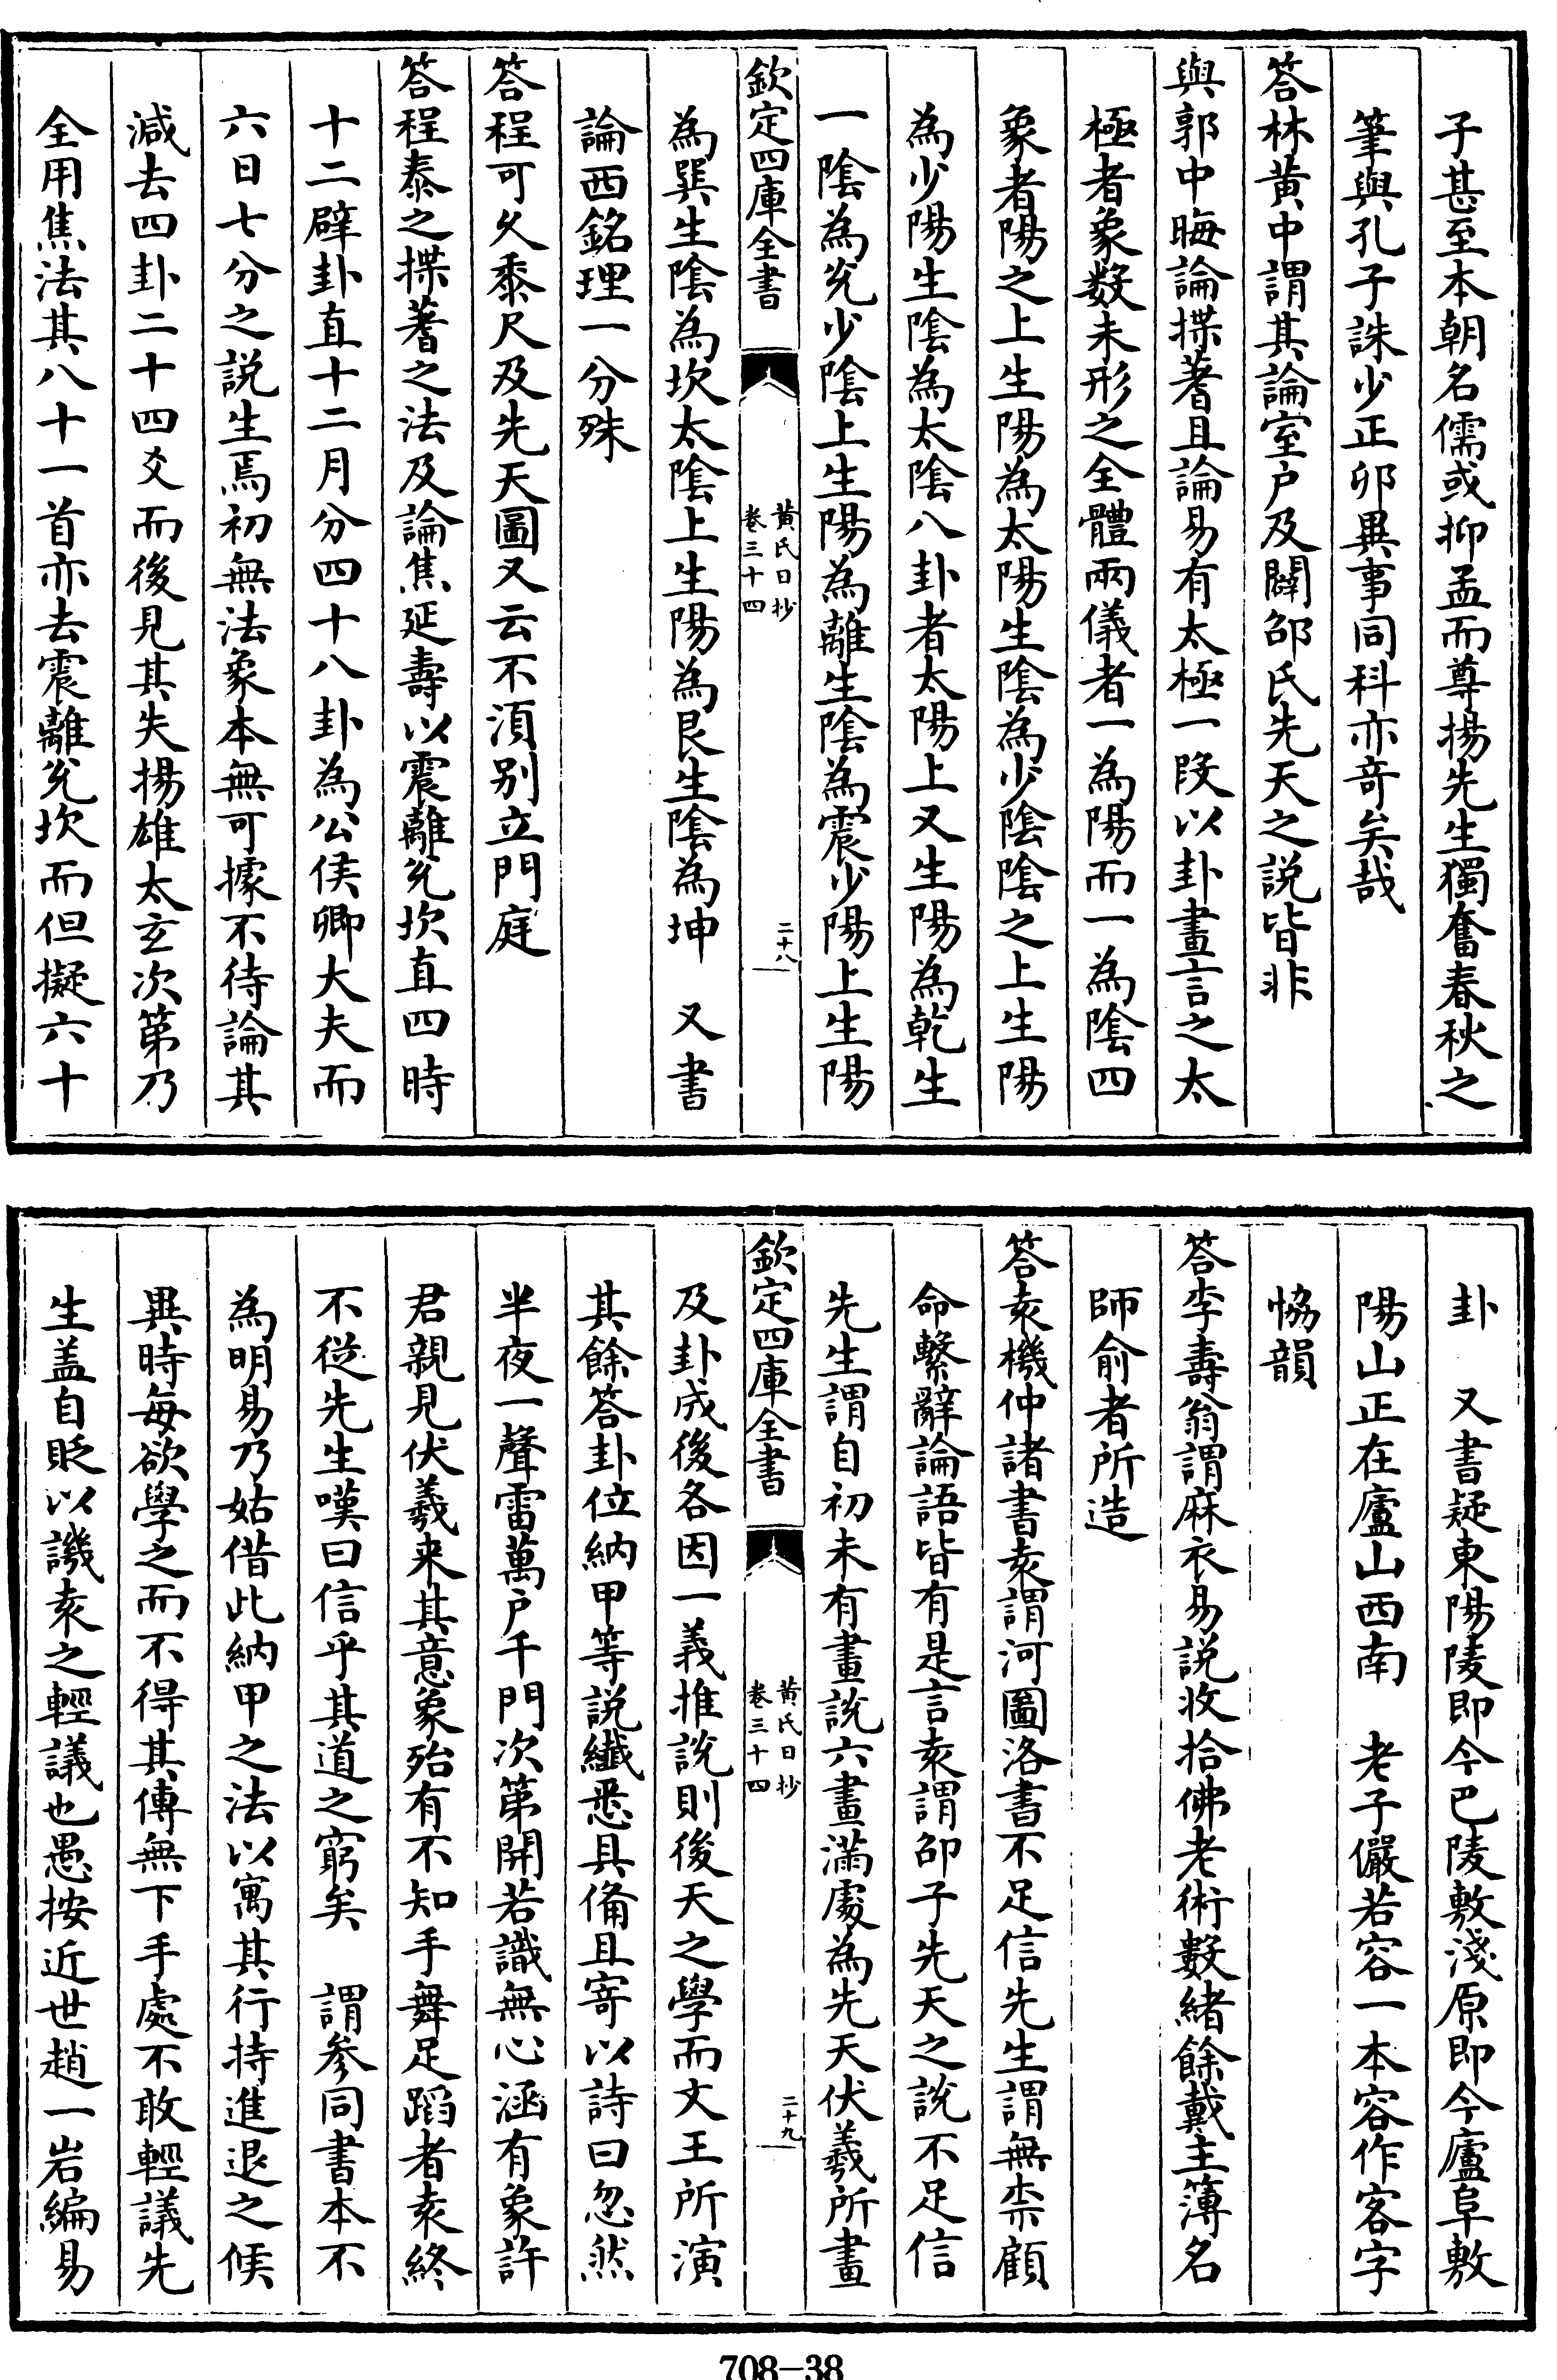 子甚至本朝名儒或抑孟而尊揚先生獨奮春秋之
筆與孔子誅少正卯異事同科亦竒矣哉
答林黄中謂其論室户及闢邵氏先天之説皆非
與郭中晦論揲蓍且論易有太極一段以卦畫言之太
極者象数未形之全體兩儀者一為陽而一為陰四
象者陽之上生陽為太陽生陰為少陰陰之上生陽
為少陽生陰為太陰八卦者太陽上又生陽為乾生
一陰為兊少陰上生陽為離生陰為震少陽上生陽
欽定四庫全書
黄氏日抄
卷三十四
二十八
為巽生陰為坎太陰上生陽為艮生陰為坤　又書
論西銘理一分殊
答程可久黍尺及先天圖又云不湏别立門庭
答程泰之揲蓍之法及論焦延壽以震離兊坎直四時
十二辟卦直十二月分四十八卦為公侯卿大夫而
六日七分之説生焉初無法象本無可據不待論其
減去四卦二十四爻而後見其失揚雄太玄次第乃
全用焦法其八十一首亦去震離兊坎而但擬六十
卦　又書疑東陽陵即今巴陵敷淺原即今廬阜敷
陽山正在廬山西南　老子儼若容一本容作客字
恊韻
答李壽翁謂麻衣易説收拾佛老術數緒餘戴主簿名
師俞者所造
答袁機仲諸書袁謂河圖洛書不足信先生謂無柰顧
命繫辭論語皆有是言袁謂邵子先天之說不足信
先生謂自初未有畫說六畫滿處為先天伏羲所畫
欽定四庫全書
黄氏日抄
卷三十四
二十九
及卦成後各因一義推說則後天之學而文王所演
其餘答卦位納甲等説纎悉具備且寄以詩曰忽然
半夜一聲雷萬户千門次第開若識無心涵有象許
君親見伏羲来其意象殆有不知手舞足蹈者袁終
不從先生嘆曰信乎其道之窮矣　謂參同書本不
為明易乃姑借此納甲之法以寓其行持進退之候
異時每欲學之而不得其傳無下手處不敢輕議先
生盖自貶以譏袁之輕議也愚按近世趙一岩編易
708-38